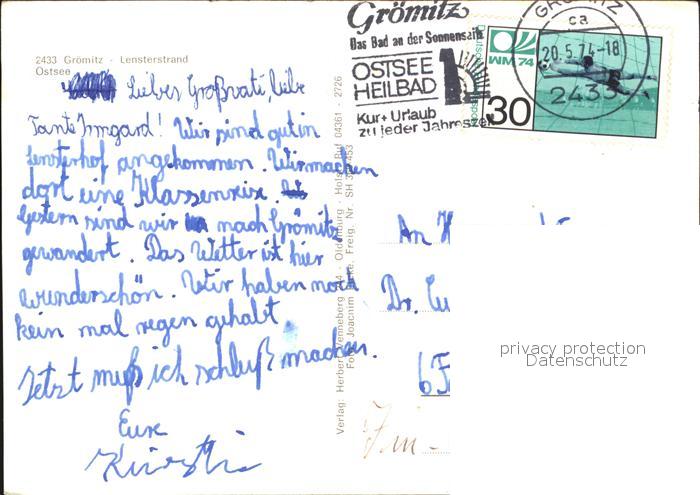 2433 Grömitz - Lensterstrand
Ostsee
Lieber Großvati, liebe
Tante Irmgard! Wir sind gut in
Lensterhof angekommen. Wir machen
dort eine Klassenreise.
Gestern sind wir nach Grömitz
gewandert. Das Wetter ist hier
wunderschön. Wir haben noch
kein mal regen gehabt
Jetzt muß ich schluß machen.
Eure
Kirsti
Verlag: Herbert Wenneberg · Oldenburg · Holst. Ruf 04361 - 2726
Foto: Joachim Freig. Nr. SH 453
Grömitz
Das Bad an der Sonnenseite
OSTSEE
HEILBAD
Kur + Urlaub
zu jeder Jahreszeit
GRÖMITZ
ca
20.5.74-18
2433
WM 74
30
An
Dr.
6
privacy protection
Datenschutz